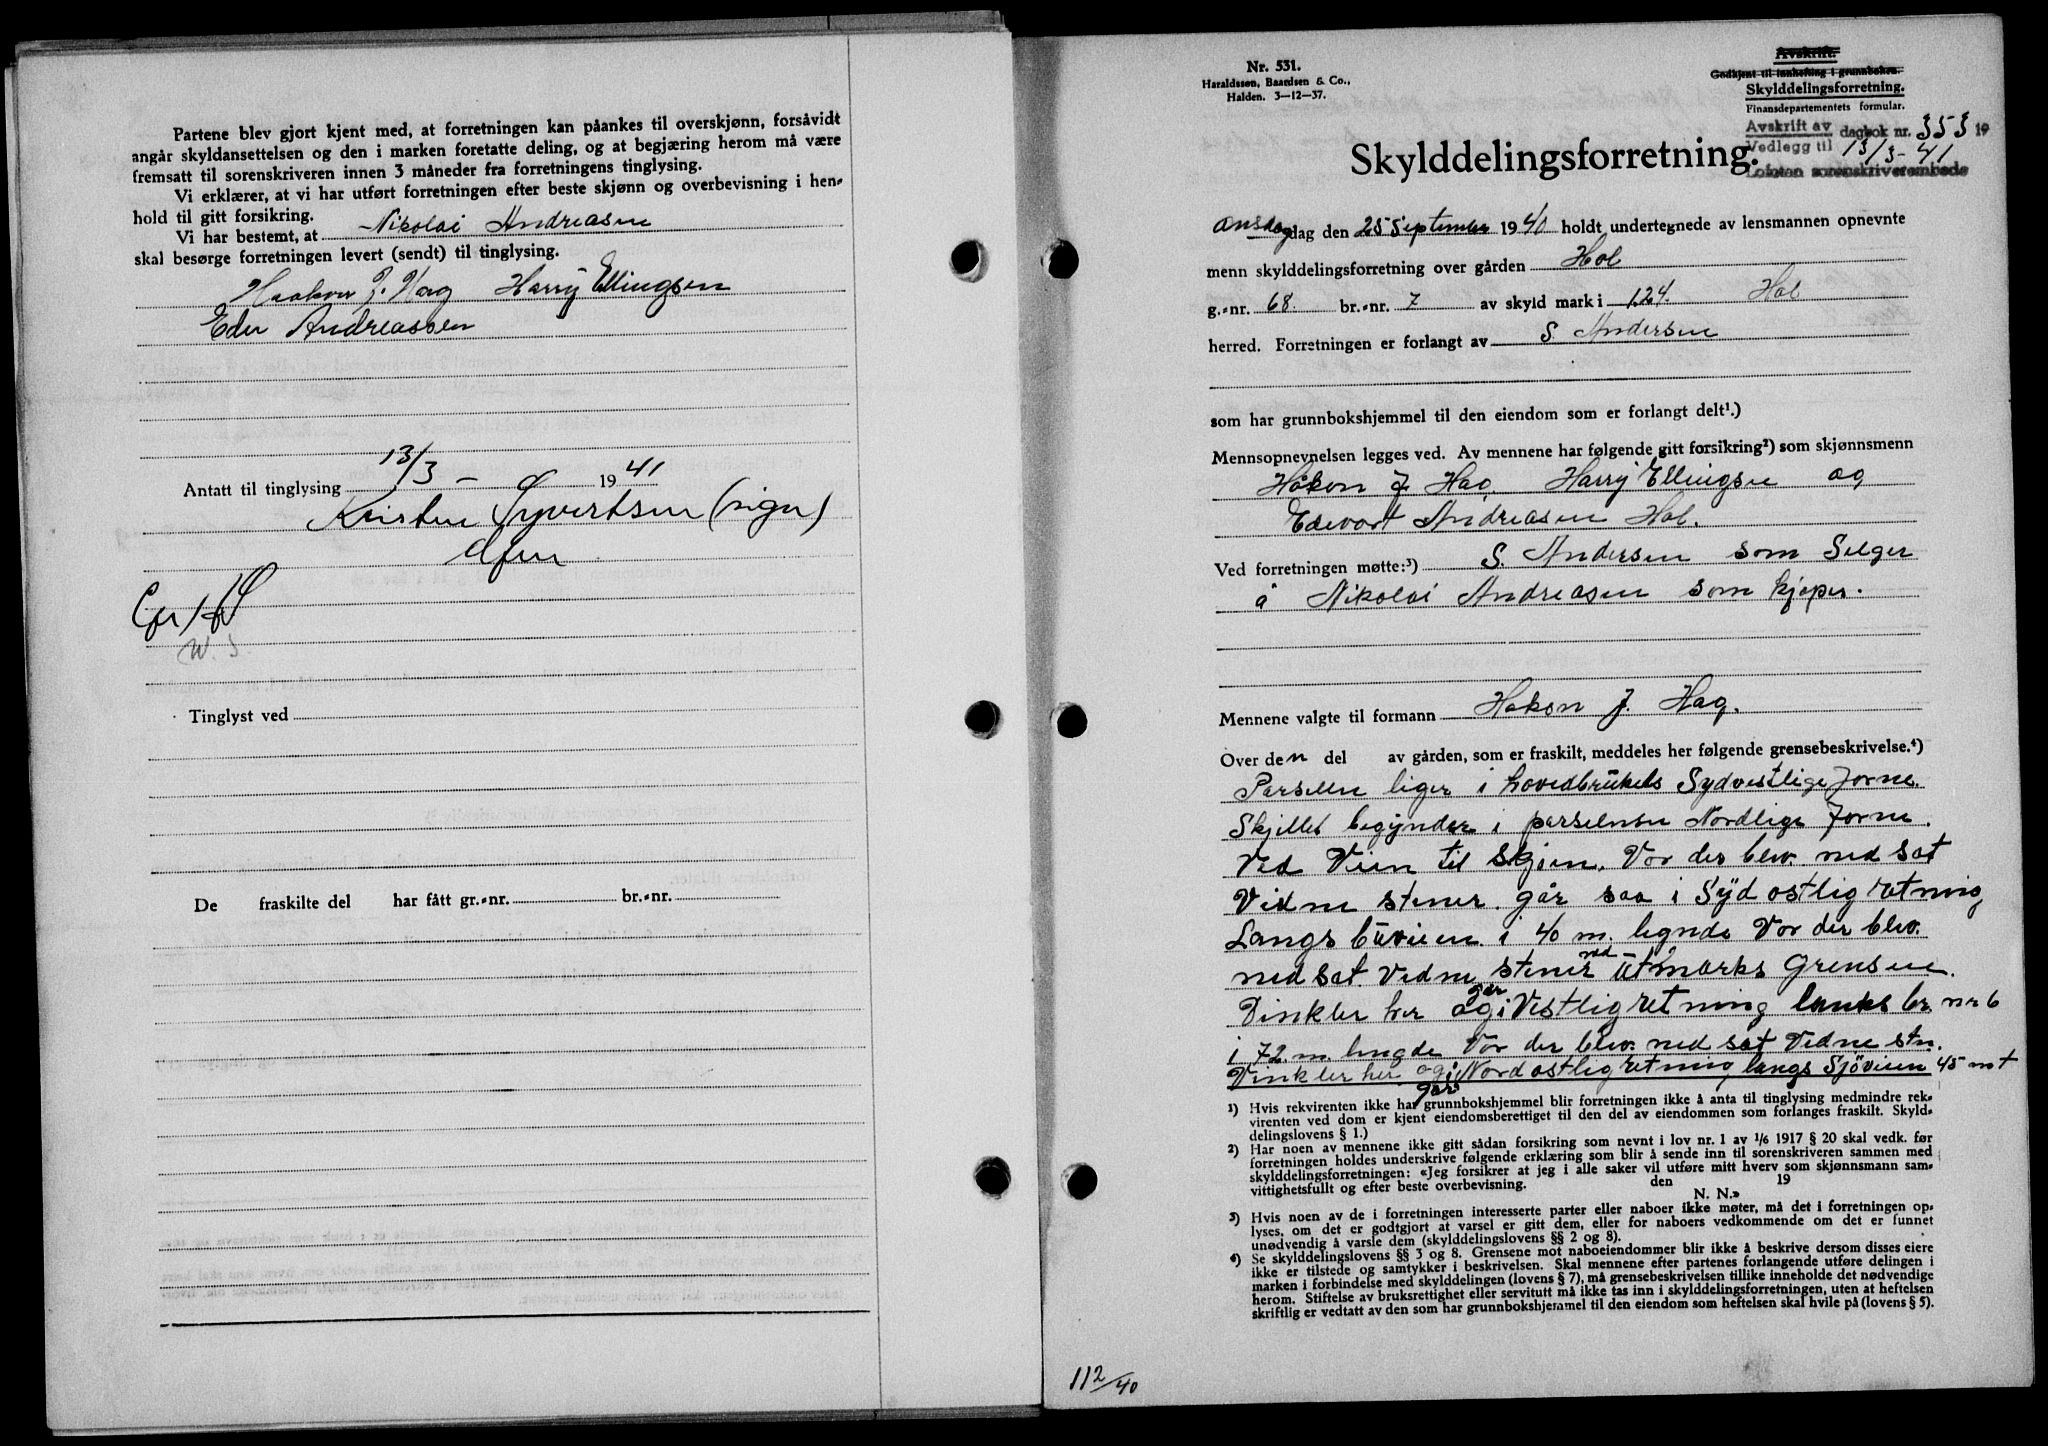 Partene blev gjort kjent med, at forretningen kan påankes til overskjønn, forsåvidt
angår skyldansettelsen og den i marken foretatte deling, og at begjæring herom må være
fremsatt til sorenskriveren innen 3 måneder fra forretningens tinglysing.
Vi erklærer, at vi har utført forretningen efter beste skjønn og overbevisning i hen-
hold til gitt forsikring.
Vi har bestemt, at Nikolai Andreasen
skal besørge forretningen levert (sendt) til tinglysing.
Haakon J. Hag Harry Ellingsen
Edv Andreassen
Antatt til tinglysing 13/3 - 19 41
Kristen Syvertsen (sign)
Tinglyst ved
De fraskilte del har fått gr.-nr. br.-nr.
Nr. 531.
Haraldssen, Baardsen & Co.,
Halden. 3—12—37.
Avskrift.
Godkjent til innhefting i grunnboken.
Skylddelingsforretning.
Finansdepartementets formular.
Avskrift av dagbok nr. 353 19
Vedlegg til 13/3-41
Lofoten sorenskriverembede
Skylddelingsforretning.
Onsdag dag den 25 September 1940 holdt undertegnede av lensmannen opnevnte
menn skylddelingsforretning over gården Hol
g.-nr. 68 br.-nr. 7 av skyld mark i 1.24. Hol
herred. Forretningen er forlangt av S. Andersen
som har grunnbokshjemmel til den eiendom som er forlangt delt¹.)
Mennsopnevnelsen legges ved. Av mennene har følgende gitt forsikring²) som skjønnsmenn
Håkon J Hag. Harry Ellingsen og
Edevart Andreasen Hol.
Ved forretningen møtte:³) S. Andersen som Selger
å Nikolai Andreasen som kjøper.
Mennene valgte til formann Hakon J. Hag.
Over den del av gården, som er fraskilt, meddeles her følgende grensebeskrivelse.⁴)
Parsellen liger i hovedbrukets Sydvestlige Jorne.
Skjellet begynder i parselensen Nordlige Jorne.
Ved Veien til Skjøen. Vor der blev ned sat
Vidne stener. går saa i Syd ostlig retning
Langs büveien i 40 m. legnde Vor der blev.
ned sat. Vedne stener ved Utmarks Grensen.
Vinkler her og går i Vestlig retning lanks br. nr 6
i 72. m. lengde Vor der blev. ned sat Vedne stn.
Vinkler her og går i Nordostlig retning langs Sjøveien 45 mt
¹) Hvis rekvirenten ikke har grunnbokshjemmel blir forretningen ikke å anta til tinglysing medmindre rek-
virenten ved dom er kjent eiendomsberettiget til den del av eiendommen som forlanges fraskilt. Skyld-
delingslovens § 1.)
²) Har noen av mennene ikke gitt sådan forsikring som nevnt i lov nr. 1 av 1/6 1917 § 20 skal vedk. før
forretningen holdes underskrive følgende erklæring som blir å sende inn til sorenskriveren sammen med
skylddelingsforretningen: «Jeg forsikrer at jeg i alle saker vil utføre mitt hverv som skjønnsmann sam-
vittighetsfullt og efter beste overbevisning. den 19
N. N.»
³) Hvis noen av de i forretningen interesserte parter eller naboer ikke møter, må det i forretningen op-
lyses, om det er godtgjort at varsel er gitt dem, eller for naboers vedkommende om det er funnet
unødvendig å varsle dem (skylddelingslovens §§ 2 og 8).
⁴) Se skylddelingslovens §§ 3 og 8. Grensene mot naboeiendommer blir ikke å beskrive dersom disses eiere
ikke er tilstede og samtykker i beskrivelsen. Skal mennene efter partenes forlangende utføre delingen i
marken i forbindelse med skylddelingen (lovens § 7), må grensebeskrivelsen tillike inneholde det nødvendige
herom. Stiftelse av bruksrettighet eller servitutt må ikke tas inn i skylddelingsforretningen, uten at heftelsen
skriftlig er vedtatt av den som har grunnbokshjemmel til den eiendom som heftelsen skal hvile på (lovens § 5).
112/40